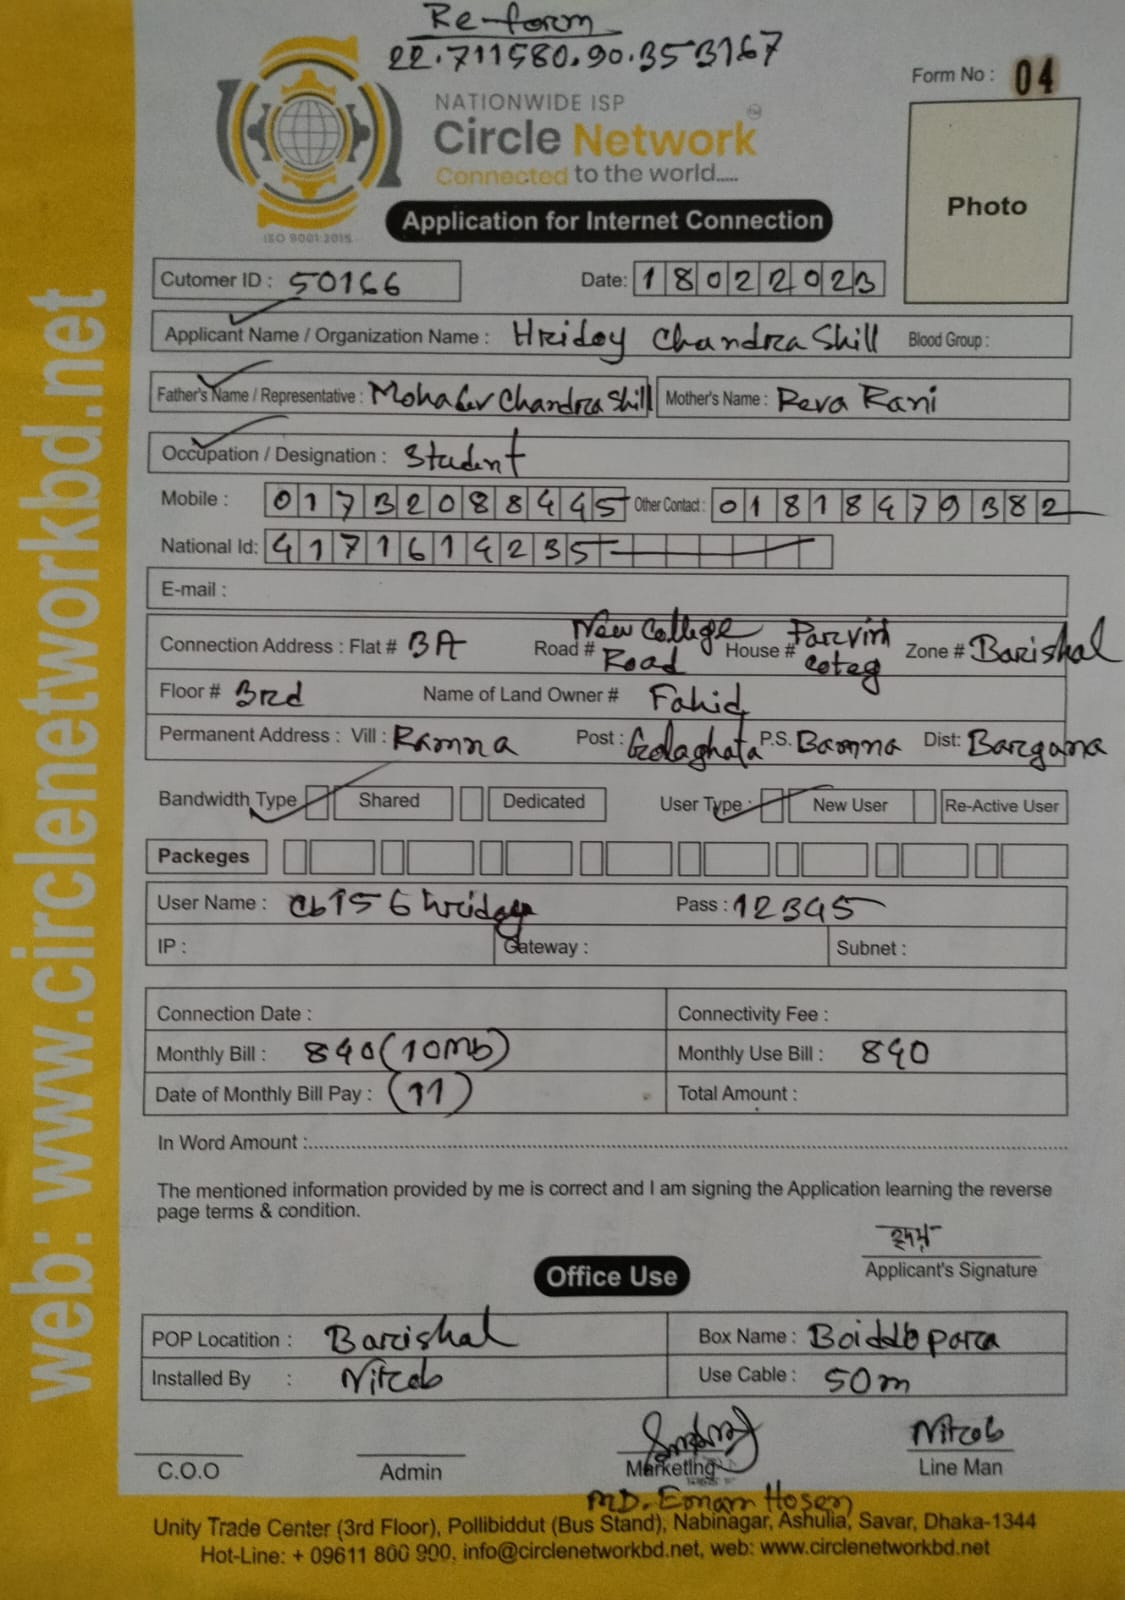 Re-form
22.711580.90.353167
Form No : 04
NATIONWIDE ISP
Circle Network
Connected to the world.....
ISO 9001:2015
Photo
Application for Internet Connection
Cutomer ID : 50166 Date: 18022023
Applicant Name / Organization Name : Hridoy Chandra Shill Blood Group :
Father's Name / Representative : Chandra Shill Mother's Name : Reva Rani
Occupation / Designation : Student
Mobile : 01732088445 Other Contact : 01818479382
National Id: 4171614235
E-mail :
Connection Address : Flat # 3A Road # New College Road House # Parvin coteg Zone # Barishal
Floor # 3rd Name of Land Owner # Fahid
Permanent Address : Vill : Ramna Post : Golaghata P.S. Bamna Dist: Bargana
Bandwidth Type Shared Dedicated User Type : New User Re-Active User
Packeges
User Name : Pass : 12345
IP : Gateway : Subnet :
Connection Date : Connectivity Fee :
Monthly Bill : 840 (10Mb) Monthly Use Bill : 840
Date of Monthly Bill Pay : (11) Total Amount :
In Word Amount :
The mentioned information provided by me is correct and I am signing the Application learning the reverse
page terms & condition.
হৃদয়
Applicant's Signature
Office Use
POP Locatition : Barishal Box Name : Boiddo para
Installed By : Nirob Use Cable : 50m
Nirob
C.O.O Admin Marketing Line Man
MD. Emam Hosen
Unity Trade Center (3rd Floor), Pollibiddut (Bus Stand), Nabinagar, Ashulia, Savar, Dhaka-1344
Hot-Line: + 09611 800 900, info@circlenetworkbd.net, web: www.circlenetworkbd.net
web: www.circlenetworkbd.net